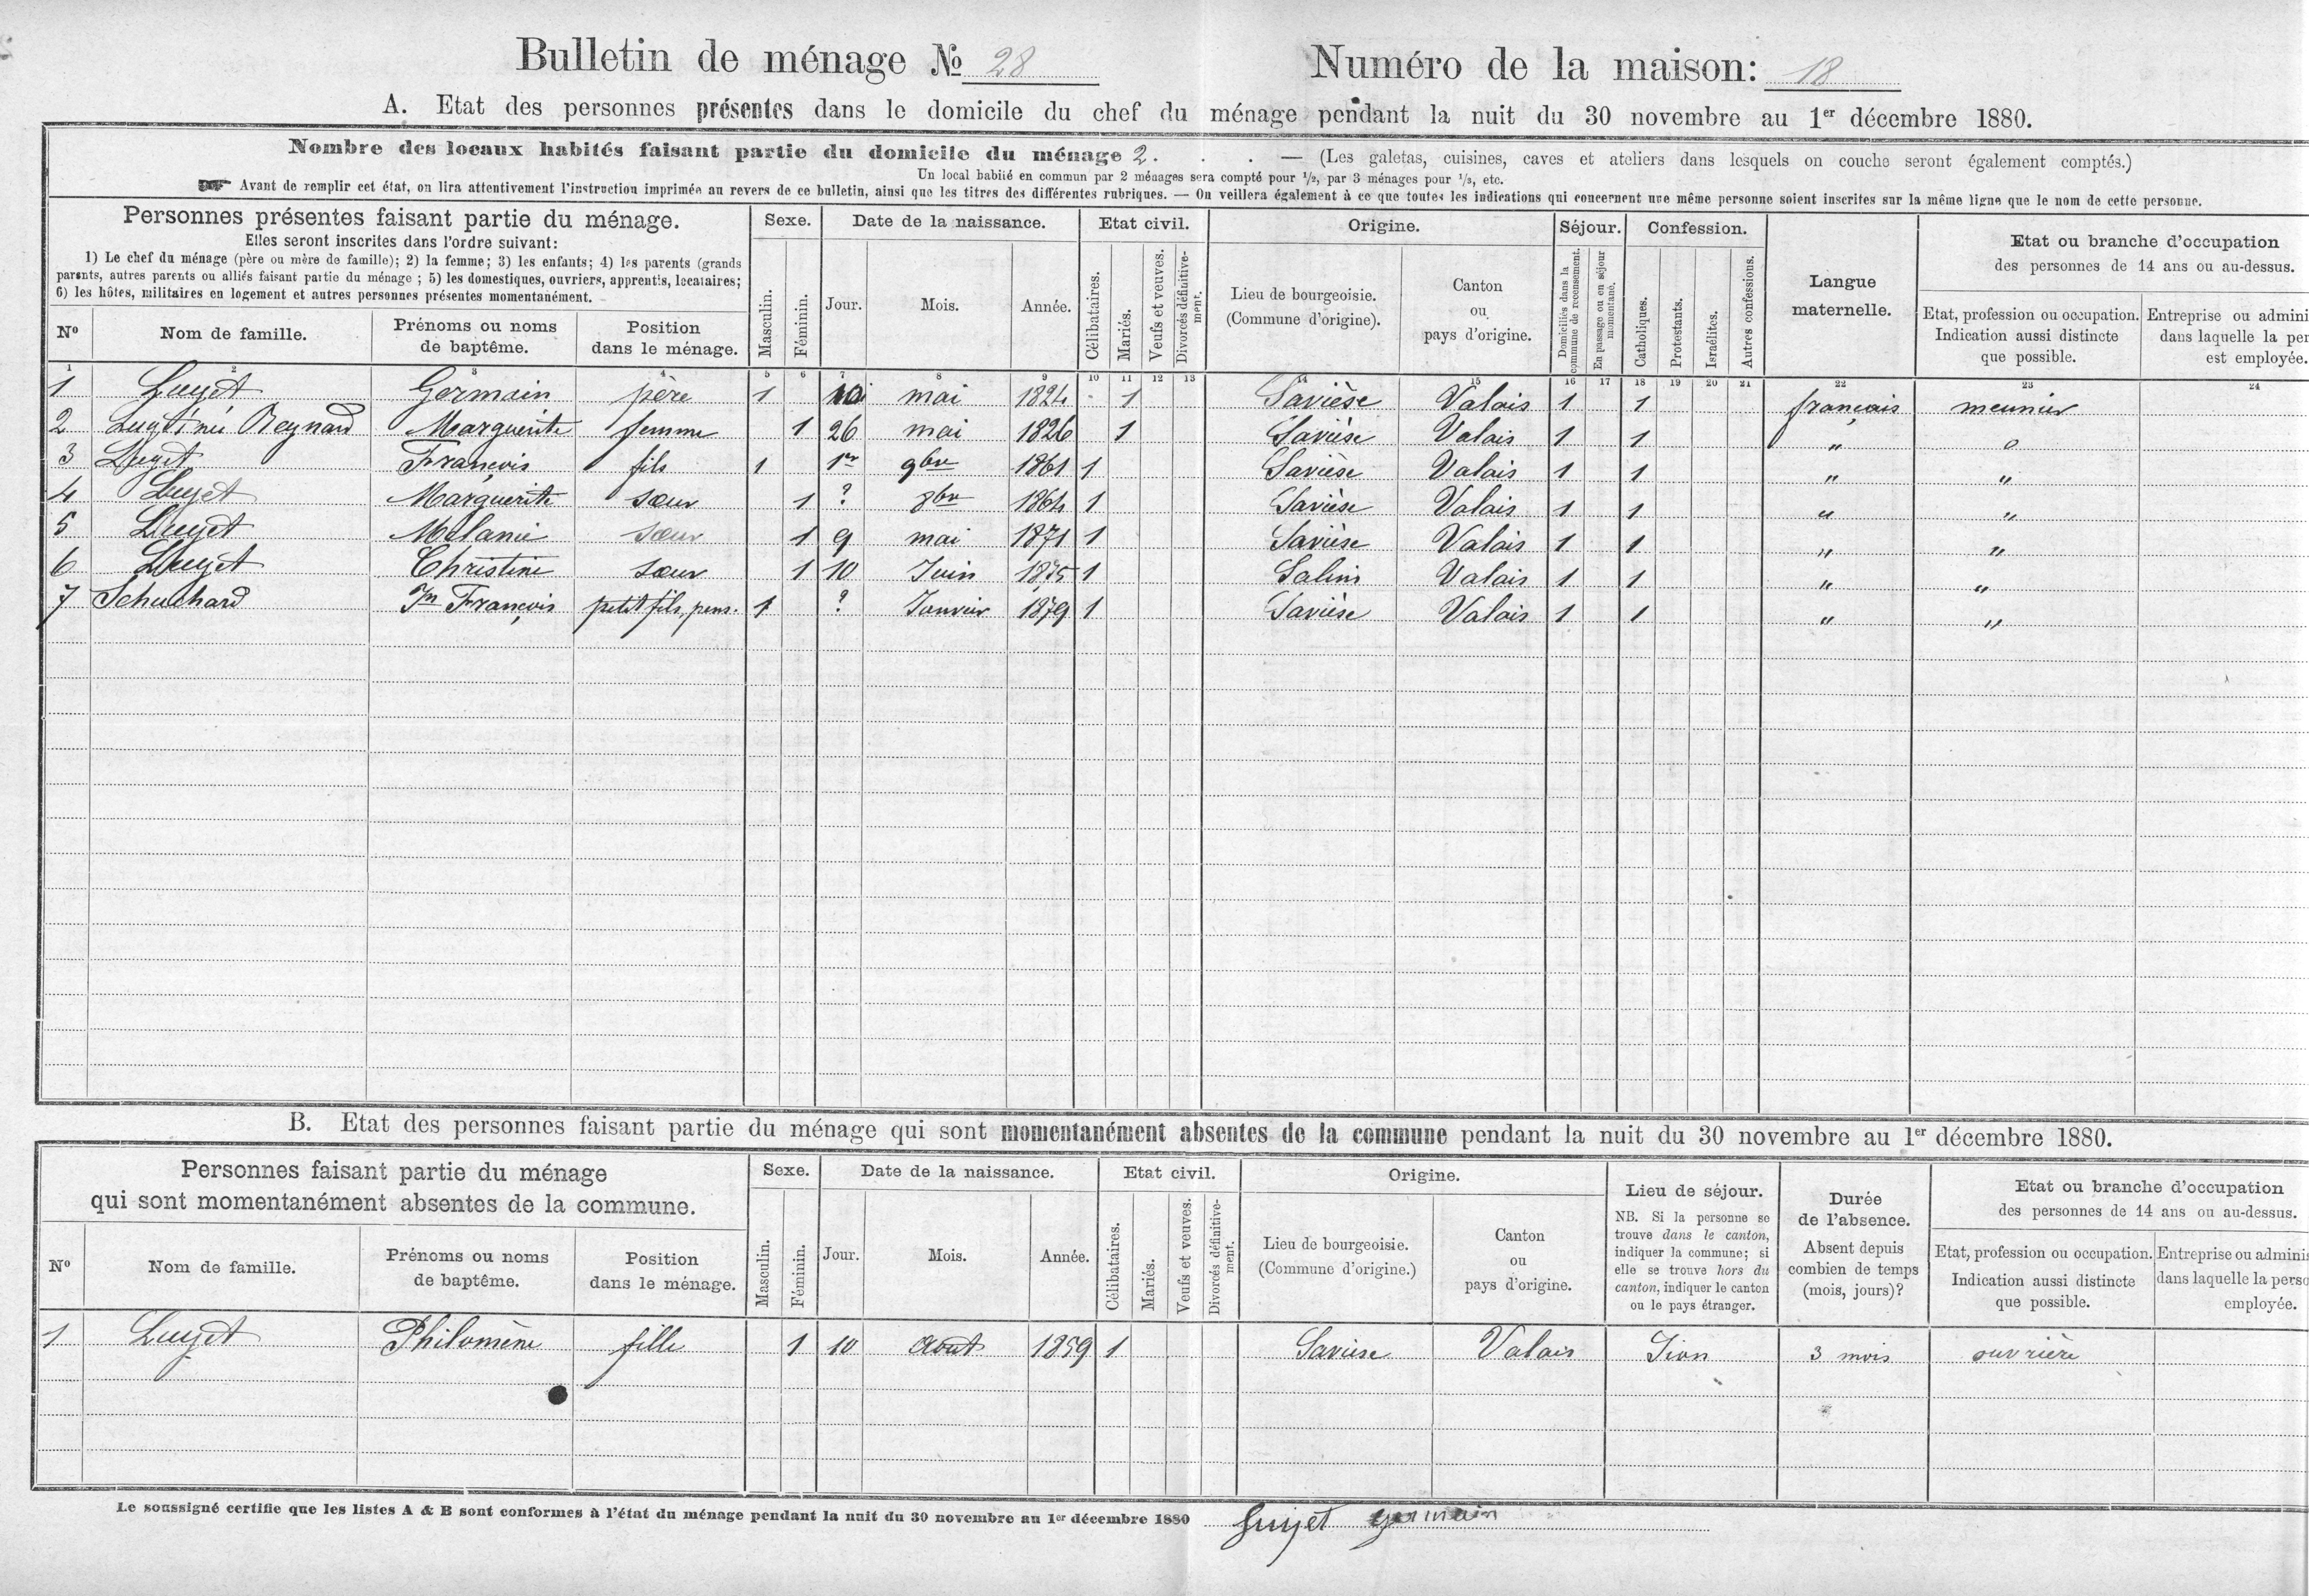 Bulletin de ménage № 28
Numéro de la maison: 18
A. Etat des personnes présentes dans le domicile du chef du ménage pendant la nuit du 30 novembre au 1er décembre 1880.
Nombre des locaux habités faisant partie du domicile du ménage 2. . . — (Les galetas, cuisines, caves et ateliers dans lesquels on couche seront également comptés.)
Un local habité en commun par 2 ménages sera compté pour 1/2, par 3 ménages pour 1/3, etc.
☞ Avant de remplir cet état, on lira attentivement l'instruction imprimée au revers de ce bulletin, ainsi que les titres des différentes rubriques. — On veillera également à ce que toutes les indications qui concernent une même personne soient inscrites sur la même ligne que le nom de cette personne.
Personnes présentes faisant partie du ménage.
Elles seront inscrites dans l'ordre suivant:
1) Le chef du ménage (père ou mère de famille); 2) la femme; 3) les enfants; 4) les parents (grands
parents, autres parents ou alliés faisant partie du ménage ; 5) les domestiques, ouvriers, apprentis, locataires;
6) les hôtes, militaires en logement et autres personnes présentes momentanément.
Nº
Nom de famille.
Prénoms ou noms
de baptême.
Position
dans le ménage.
Sexe.
Masculin.
Féminin.
Date de la naissance.
Jour.
Mois.
Année.
Etat civil.
Célibataires.
Mariés.
Veufs et veuves.
Divorcés définitive-
ment.
Origine.
Lieu de bourgeoisie.
(Commune d'origine).
Canton
ou
pays d'origine.
Séjour.
Domiciliés dans la
commune de recensement.
En passage ou en séjour
momentané.
Confession.
Catholiques.
Protestants.
Israélites.
Autres confessions.
Langue
maternelle.
Etat ou branche d'occupation
des personnes de 14 ans ou au-dessus.
Etat, profession ou occupation.
Indication aussi distincte
que possible.
Entreprise ou admini
dans laquelle la per
est employée.
1 2 3 4 5 6 7 8 9 10 11 12 13 14 15 16 17 18 19 20 21 22 23 24
1 Luyet Germain père 1 10 mai 1824 1 Savièse Valais 1 1 français meunier
2 Luyet née Reynard Marguerite femme 1 26 mai 1826 1 Savièse Valais 1 1 " o
3 Luyet François fils 1 1er 9bre 1861 1 Savièse Valais 1 1 " "
4 Luyet Marguerite sœur 1 ? 8bre 1864 1 Savièse Valais 1 1 " "
5 Luyet Mélanie sœur 1 9 mai 1871 1 Savièse Valais 1 1 " "
6 Luyet Christine sœur 1 10 Juin 1875 1 Salins Valais 1 1 " "
7 Schuchard Jn François petit fils, pens. 1 ? Janvier 1879 1 Savièse Valais 1 1 " "
B. Etat des personnes faisant partie du ménage qui sont momentanément absentes de la commune pendant la nuit du 30 novembre au 1er décembre 1880.
Personnes faisant partie du ménage
qui sont momentanément absentes de la commune.
Nº
Nom de famille.
Prénoms ou noms
de baptême.
Position
dans le ménage.
Sexe.
Masculin.
Féminin.
Date de la naissance.
Jour.
Mois.
Année.
Etat civil.
Célibataires.
Mariés.
Veufs et veuves.
Divorcés définitive-
ment.
Origine.
Lieu de bourgeoisie.
(Commune d'origine.)
Canton
ou
pays d'origine.
Lieu de séjour.
NB. Si la personne se
trouve dans le canton,
indiquer la commune; si
elle se trouve hors du
canton, indiquer le canton
ou le pays étranger.
Durée
de l'absence.
Absent depuis
combien de temps
(mois, jours)?
Etat ou branche d'occupation
des personnes de 14 ans ou au-dessus.
Etat, profession ou occupation.
Indication aussi distincte
que possible.
Entreprise ou adminis
dans laquelle la perso
employée.
1 Luyet Philomène fille 1 10 Août 1859 1 Savièse Valais Sion 3 mois ouvrière
Le soussigné certifie que les listes A & B sont conformes à l'état du ménage pendant la nuit du 30 novembre au 1er décembre 1880 Luyet germain